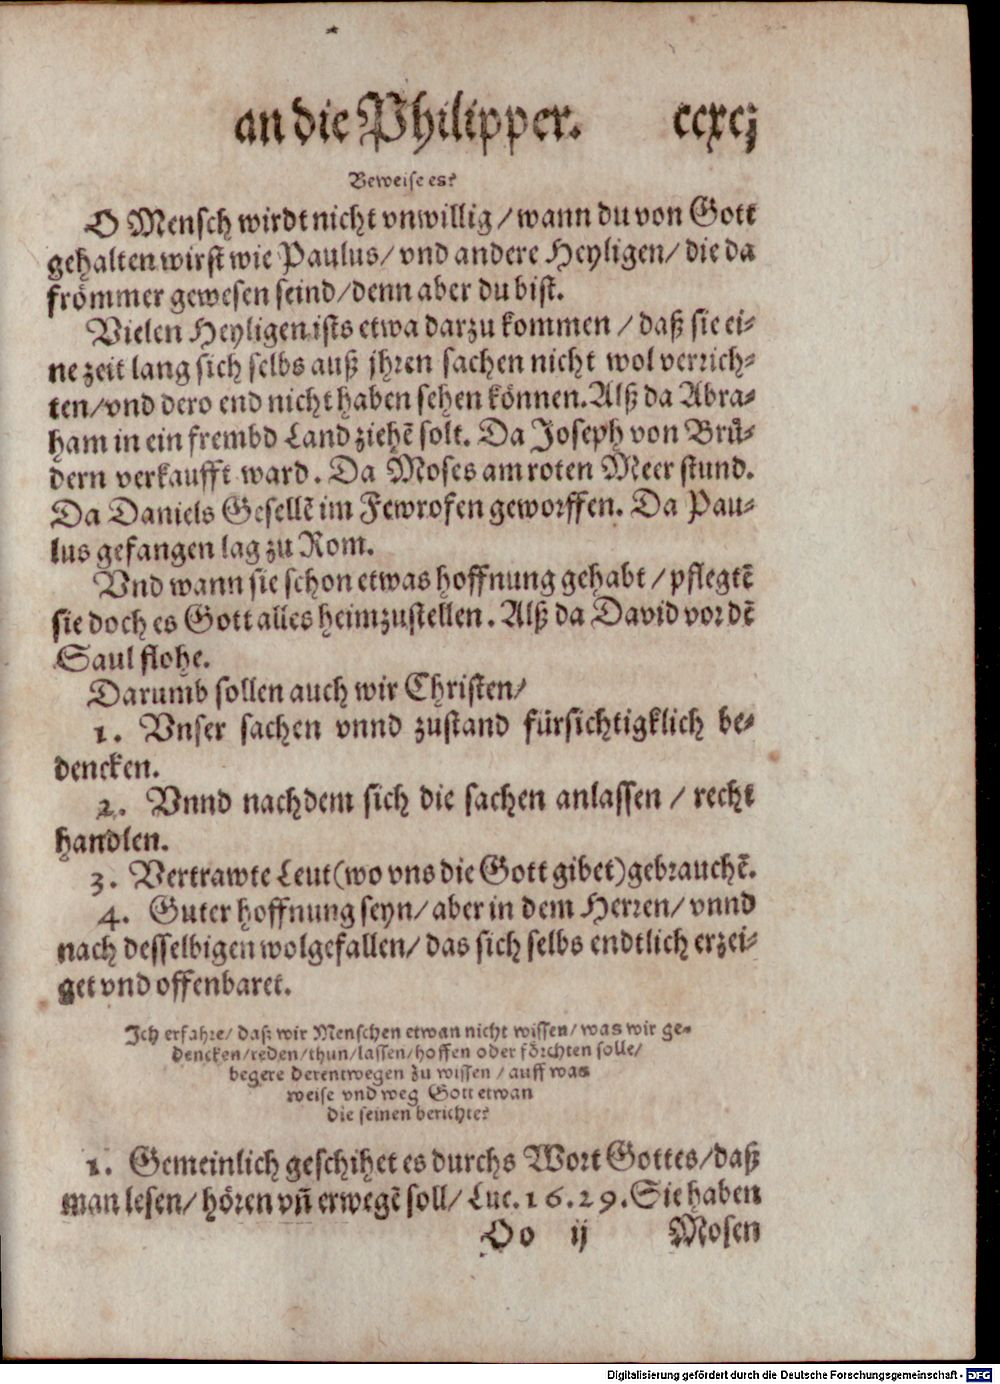 an die Philipper. ccxcj
Beweise es?
O Mensch wirdt nicht vnwillig / wann du von Gott
gehalten wirst wie Paulus / vnd andere Heyligen / die da
frömmer gewesen seind / denn aber du bist.
Vielen Heyligen ists etwa darzu kommen / daß sie ei-
ne zeit lang sich selbs auß jhren sachen nicht wol verrich-
ten / vnd dero end nicht haben sehen können. Alß da Abra-
ham in ein frembd Land ziehẽ solt. Da Joseph von Bruͤ-
dern verkaufft ward. Da Moses am roten Meer stund.
Da Daniels Gesellẽ im Fewrofen geworffen. Da Pau-
lus gefangen lag zu Rom.
Vnd wann sie schon etwas hoffnung gehabt / pflegtẽ
sie doch es Gott alles heimzustellen. Alß da David vor dẽ
Saul flohe.
Darumb sollen auch wir Christen /
1. Vnser sachen vnnd zustand fürsichtigklich be-
dencken.
2. Vnnd nachdem sich die sachen anlassen / recht
handlen.
3. Vertrawte Leut (wo vns die Gott gibet) gebrauchẽ.
4. Guter hoffnung seyn / aber in dem Herren / vnnd
nach desselbigen wolgefallen / das sich selbs endtlich erzei-
get vnd offenbaret.
Ich erfahre / daß wir Menschen etwan nicht wissen / was wir ge-
dencken / reden / thun / lassen / hoffen oder förchten solle /
begere derentwegen zu wissen / auff was
weise vnd weg Gott etwan
die seinen berichte?
1. Gemeinlich geschihet es durchs Wort Gottes / daß
man lesen / hören vñ erwegẽ soll / Luc. 16. 29. Sie haben
Oo ij Mosen
Digitalisierung gefördert durch die Deutsche Forschungsgemeinschaft - DFG